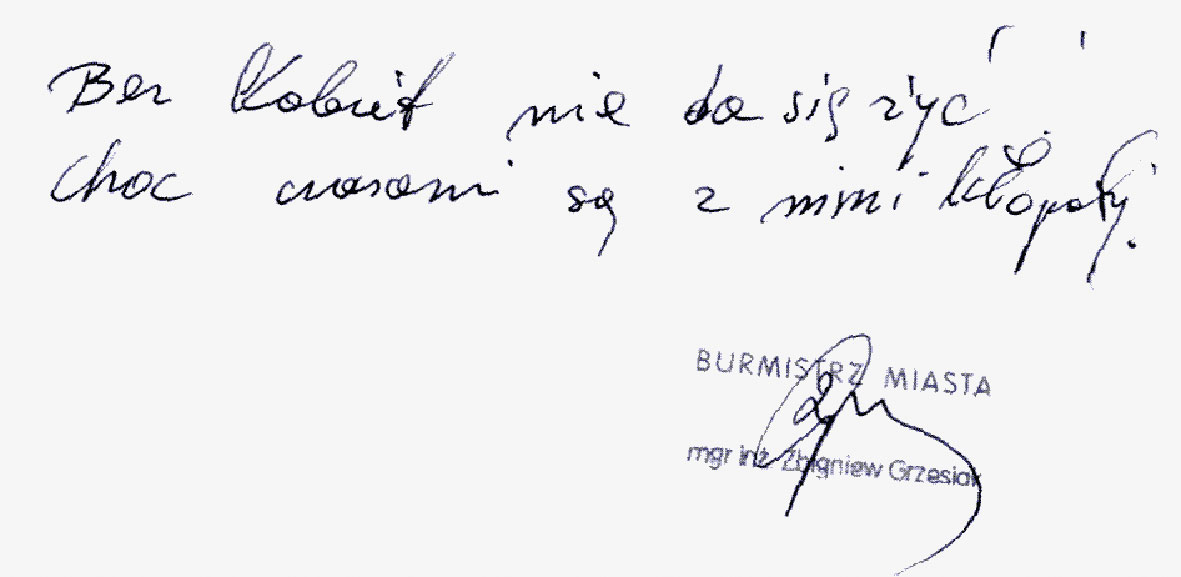 Bez Kobiet nie da się żyć
choc czasami są z nimi kłopoty.
BURMISTRZ MIASTA
mgr inż. Zbigniew Grzesiak